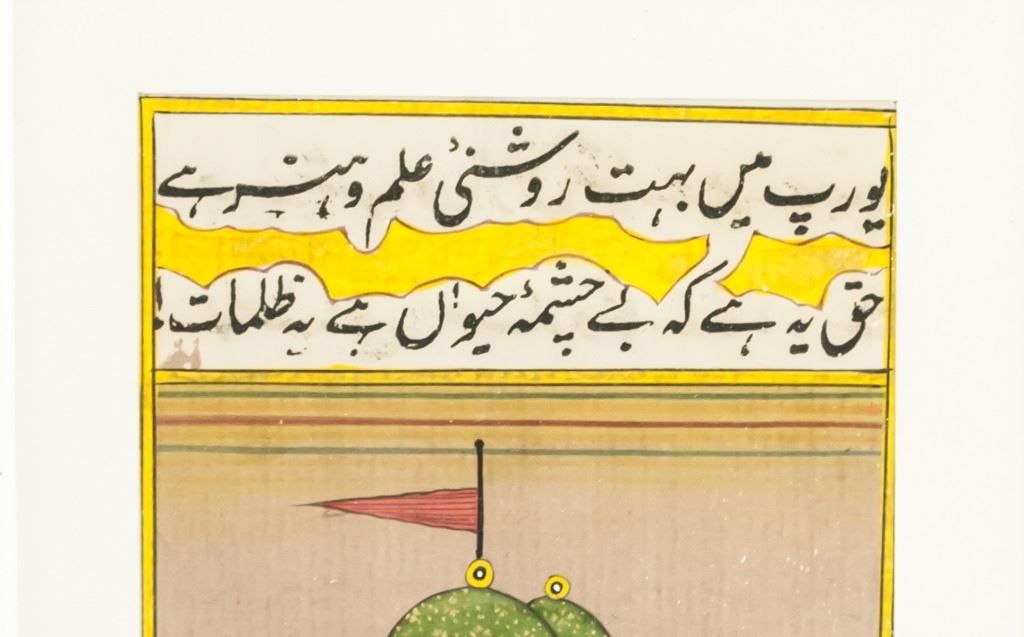 یورپ میں بہت روشنیٔ علم و ہنر ہے
حق یہ ہے کہ بے چشمۂ حیواں ہے یہ ظلمات!